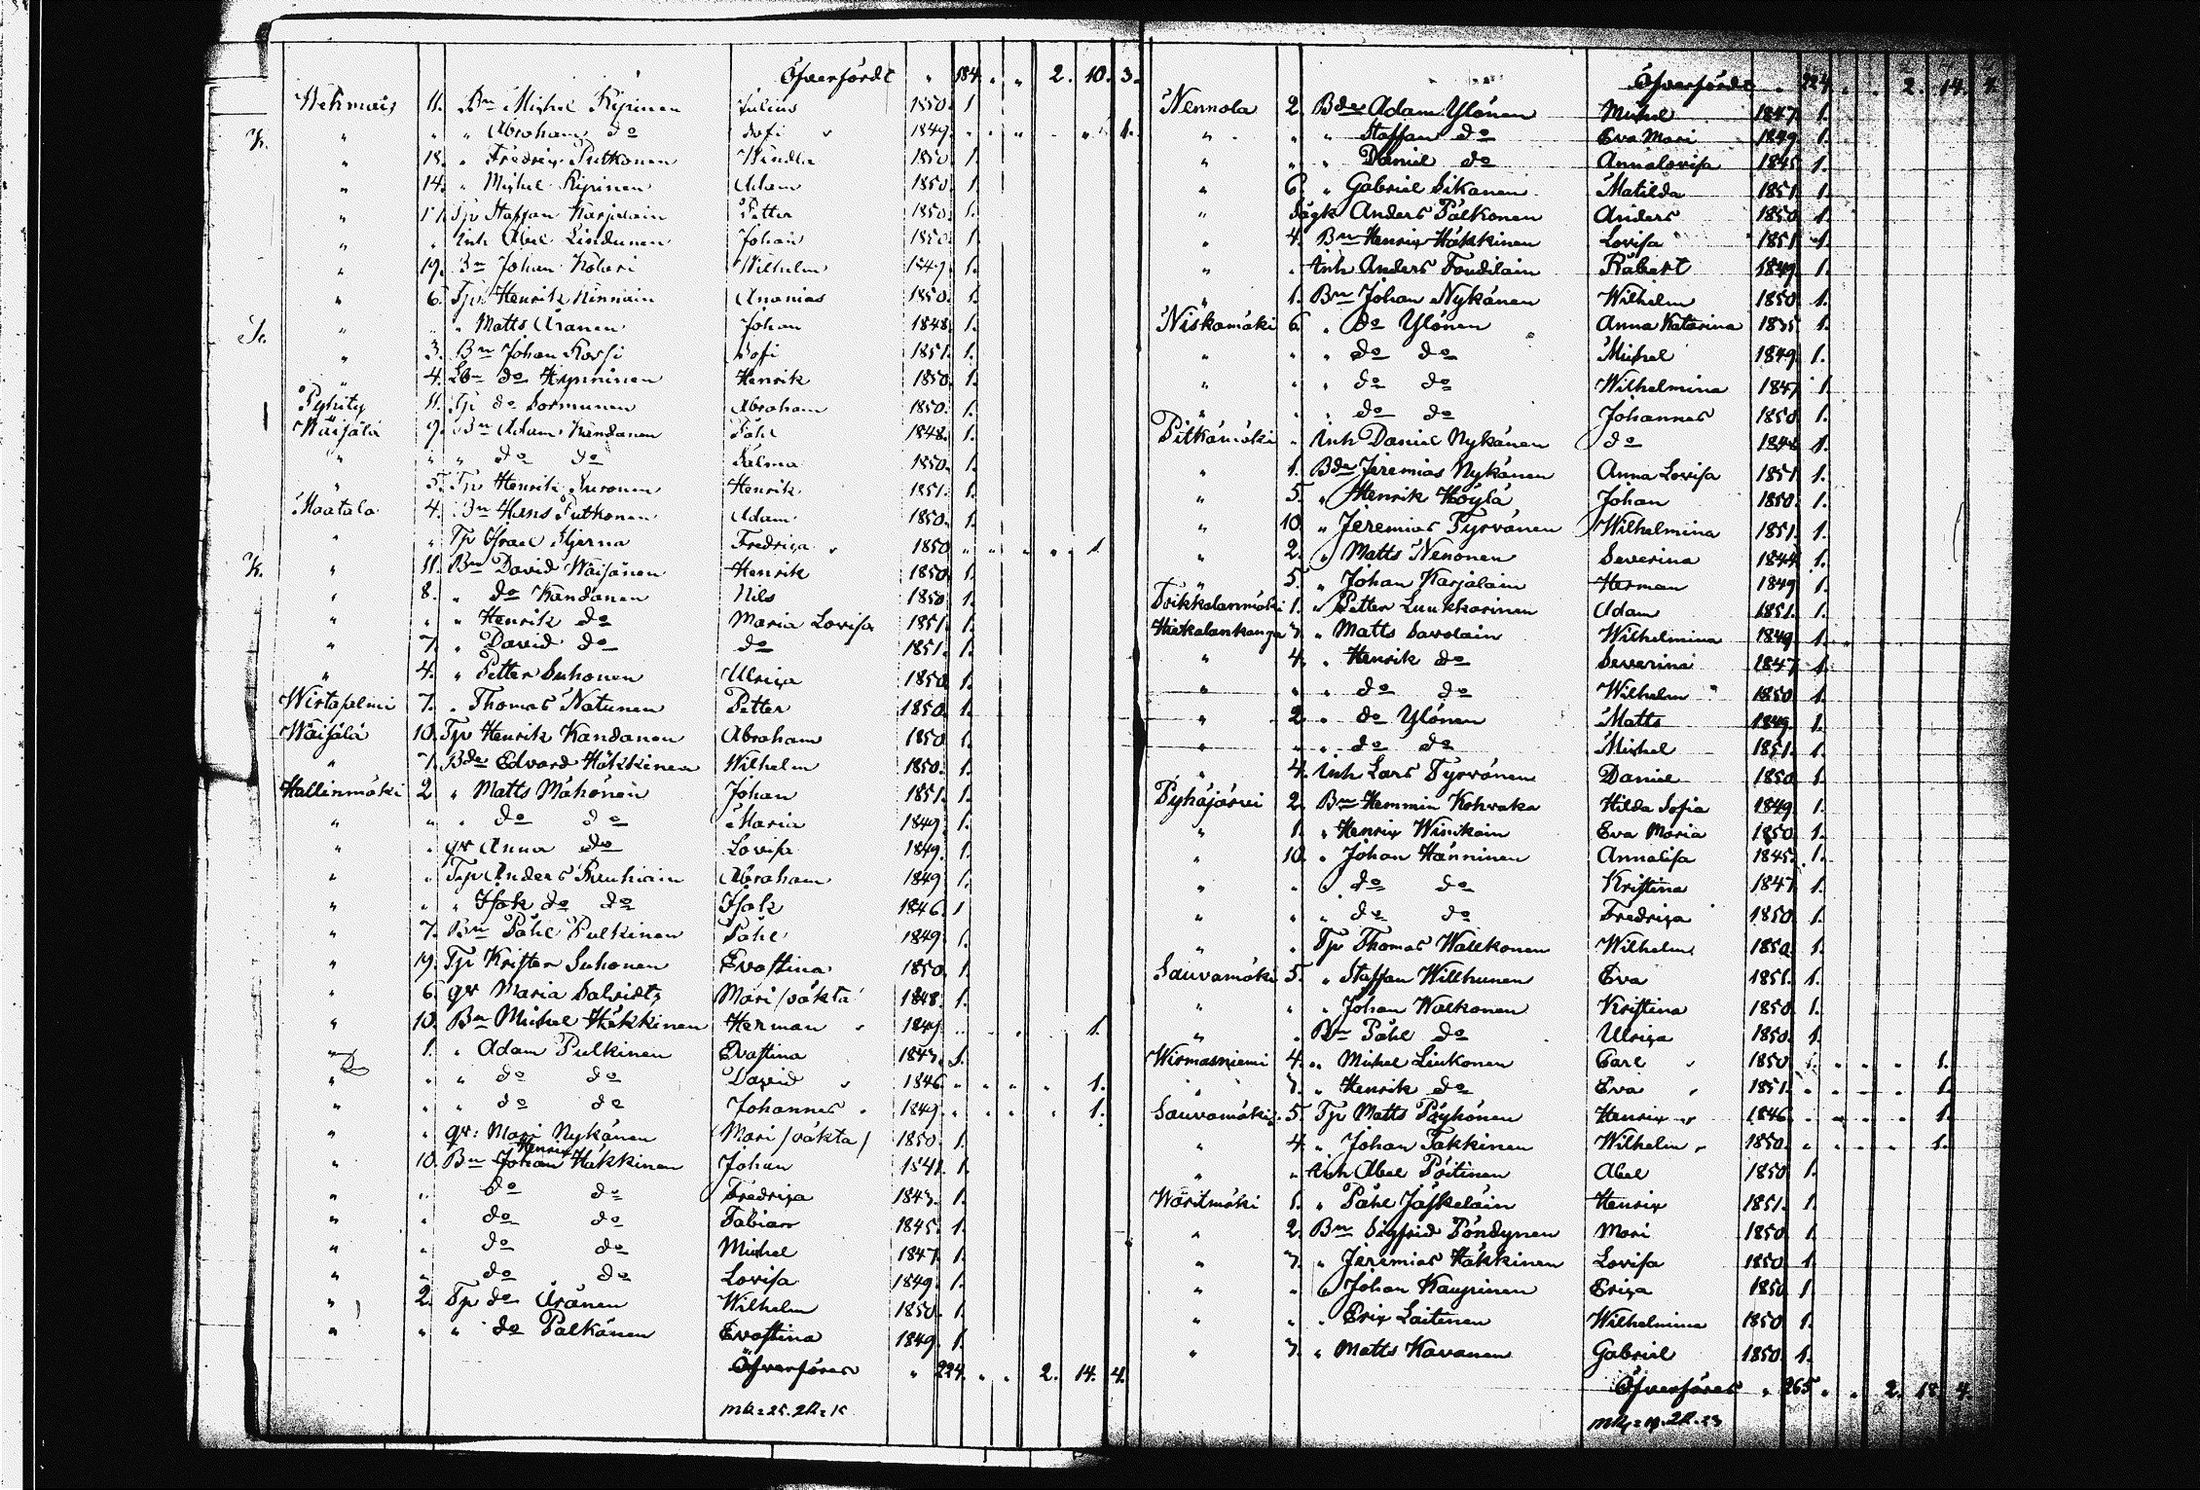 Öfverfördt " 184. " " 2. 10. 3.
Wehmais 11. Bn Michel Kipinen Julius 1850. 1.
K. " " " Abraham do Sofi " 1849. " " " " " 1.
" 18. " Fredrix Putkonen 1850. 1.
" 14. " Michel Kipinen Adam 1850. 1.
" 17. Tp Staffan Karjalain Petter 1850. 1.
" " Inh Abel Lindunen Johan 1850. 1.
" 19. Bn Johan Kolari Wilhelm 1849. 1.
" 6. Tp Henrik Kinnain Ananias 1850. 1.
" " " Matts Äranen Johan 1848. 1.
" 3. Bn Johan Sofi 1851. 1.
" 4. do Hynninen Henrik 1850. 1.
11. Tp do Sormunen Abraham 1850. 1.
Wäisälä 9. Bn Adam Kandanen Påhl 1848. 1.
" " " do do Selma 1850. 1.
" 5. Tp Henrik Henrik 1851. 1.
Maatala 4. Bn Hans Putkonen Adam 1850. 1.
" " Tp Israel Stjerna Fredrica " 1850 " " " " 1.
K. " 11. Bn David Wäisänen Henrik 1850. 1.
" 8. " do Kandanen Nils 1850. 1.
" " " Henrik do Maria Lovisa 1851. 1.
" 7. " David do do 1851. 1.
" 4. " Petter Suhonen Ulrica 1850. 1.
Wirtasalmi 7. " Thomas Natunen Petter 1850. 1.
Wäisälä 10. Tp Henrik Kandanen Abraham 1850 1.
" 7. Bdn Edvard Häkkinen Wilhelm 1850. 1.
Hallinmäki 2 " Matts Mähönen Johan 1851. 1.
" " " do do Maria 1849. 1.
" " gr Anna do Lovisa 1849. 1.
" " Tp Anders Abraham 1849 1.
" " " Isak do do Isak 1846. 1
" 7. Bn Påhl Pulkinen Påhl 1849. 1.
" 19. Tp Krister Suhonen Evastina 1850. 1.
" 6. gr Maria Mari /oäkta/ 1848. 1.
" 10. Bn Michel Häkkinen Herman " 1849. " " 1.
" 1. " Adam Pulkinen Evastina 1843. 1.
" " " do do David " 1846. " " " " 1.
" " " do do Johannes " 1849. " " " " 1.
" " gr: Mari Nykänen Mari /oäkta/ 1850. 1.
Henrix
" 10. Bn Johan Häkkinen Johan 1841. 1.
" " do do Fredrica 1843. 1.
" " do do Fabian 1845. 1.
" " do do Michel 1847. 1.
" " do do Lovisa 1849. 1.
" 2. Tp do Äränen Wilhelm 1850. 1.
" " " do Palkånen Evastina 1849. 1.
Öfverföres " 224. " " 2. 14. 4.
mk = 25. 2k = 15
Öfverfördt " 224. " " 2. 14. 4.
Nennola 2. Bdn Adam Ylönen Michel 1847. 1.
" " " Staffan do Eva Mari 1849. 1.
" " " Daniel do Annalovisa 1845. 1.
" 6. " Gabriel Sikanen Matilda 1851. 1.
" Sågk Anders Palkonen Anders 1850. 1.
" 4. Bn Henrix Häkkinen Lovisa 1851. 1.
" " Inh Anders Toudilain Robert 1849. 1.
" 1. Bn Johan Nykänen Wilhelm 1850. 1.
Niskamäki 6. " do Ylönen Anna Katarina 1835. 1.
" " " do do Michel 1849. 1.
" " " do do Wilhelmina 1847. 1.
" " " do do Johannes 1850. 1.
Pitkämäki " Inh Daniel Nykänen do 1848. 1.
" 1. Bdn Jeremias Nykänen Anna Lovisa 1851. 1.
" 5. " Henrik Höylä Johan 1850. 1.
" 10. " Jeremias Tyrvänen Wilhelmina 1851. 1.
" 2. " Matts Nenonen Severina 1844. 1.
" 5. " Johan Karjalain Herman 1849 1.
1. " Petter Luukkarinen Adam 1851. 1.
Hiekalankanga 3. " Matts Savolain Wilhelmina 1849. 1.
" 4. " Henrik do Severina 1847. 1.
" " " do do Wilhelm 1850. 1.
" 2. " do Ylönen Matts 1849. 1.
" " " do do Michel 1851. 1.
" 4. Inh Lars Tyrvönen Daniel 1850. 1.
Pyhäjärvi 2. Bn Hemmin Kohvaka Hilda Sofia 1849. 1.
" 1. " Henrix Winikain Eva Maria 1850. 1.
" 10. " Johan Hänninen Annalisa 1845. 1.
" " " do do Kristina 1847. 1.
" " " do do Fredrica 1850. 1.
" " Tp Thomas Walkonen Wilhelm 1850. 1.
Sauvamäki 5. " Staffan Willhunen Eva 1851. 1.
" " " Johan Walkonen Kristina 1850. 1.
" " Bn Påhl do Ulrica 1850. 1.
Wirmasniemi 4. " Michel Liukonen Carl " 1850. " " " " 1.
" 7. " Henrik do Eva " 1851. " " " " 1.
Sauvamäki 5. Tp Matts Pöyhönen Henrix " 1846. " " " " 1.
" 4. " Johan Takkinen Wilhelm " 1850. " " " " 1.
" " Inh Abel Pöitinen Abel 1850. 1.
1. " Påhl Jäskeläin Henrix 1851. 1.
" 2. Bn Sigfrid Pöndynen Mari 1850. 1.
" 7. " Jeremias Häkkinen Lovisa 1850. 1.
" " " Johan Kaupinen Erica 1850. 1
" " " Erix Laitinen Wilhelmina 1850. 1.
" 3. " Matts Kavanen Gabriel 1850. 1.
Öfverföres " 265. " " 2. 18. 4.